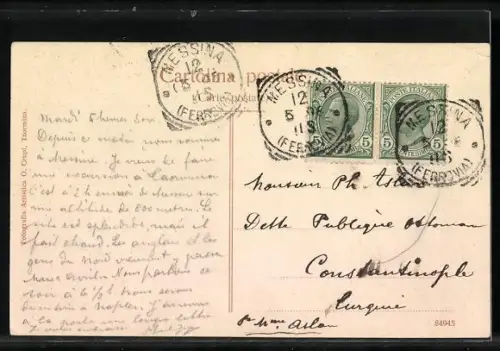 Cartolina postale
(Carte postale
MESSINA
12
(FERROVIA)
MESSINA
12
(FERROVIA)
MESSINA
12
(FERROVIA)
POSTE ITALIANE
5 5
Fotografia Artistica O. Crupi, Taormina.
Mardi 5 heures soir
Depuis ce matin nous sommes
à Messine. Je viens de faire
une excursion à Taormina
C'est à 2 h de Messine sur
une altitude de 200 metres. Le
site est splendide, mais il
fait chaud. Les anglais et les
gens du Nord viennent y passer
Nous partons ce
soir à 6 ½ h Nous serons
demain à Naples.
la poste une longue lettre
Monsieur Ph.
Dette Publique Ottomane
Constantinople
Turquie
pr Mme Aslan
84945